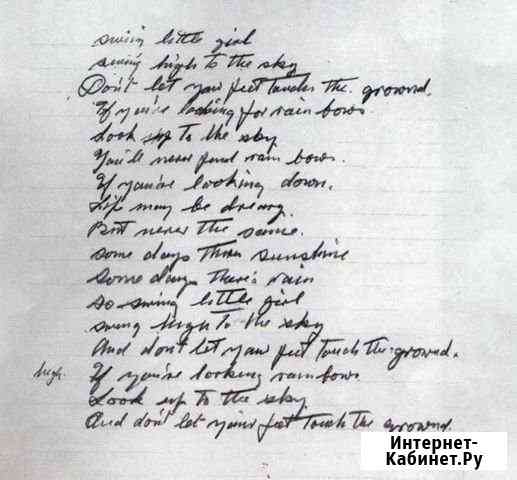 swing little girl
swing high to the sky
Don't let your feet touch the grownd.
If you're looking for rain bows
Look up to the sky
You'll never find rain bows.
If you're looking down.
Life may be dreary.
But never the same.
some days there's sunshine
Some days there's rain
so swing little girl
swing high to the sky
And don't let your feet touch the grownd.
high. If you're looking rainbows
Look up to the sky
And don't let your feet touch the grownd.
Интернет-
Кабинет.Ру